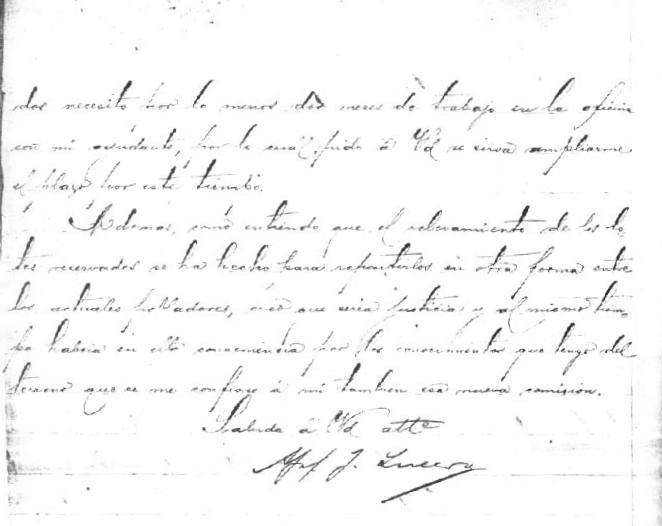 dos necesito por lo menos dos meses de trabajo en la oficina
con mi ayudante, por lo cual pido á Vd se sirva ampliarme
el plazo por este tiempo.
Ademas, como entiendo que el relevamiento de los lo-
tes reservados se ha hecho para repartirlos en otra forma entre
los actuales pobladores, creo que seria justicia y al mismo tiem-
po habria en ello conveniencia por los conocimientos que tengo del
terreno que se me confiase á mi tambien esa nueva comision.
Saluda á Vd atte
J. Lucero